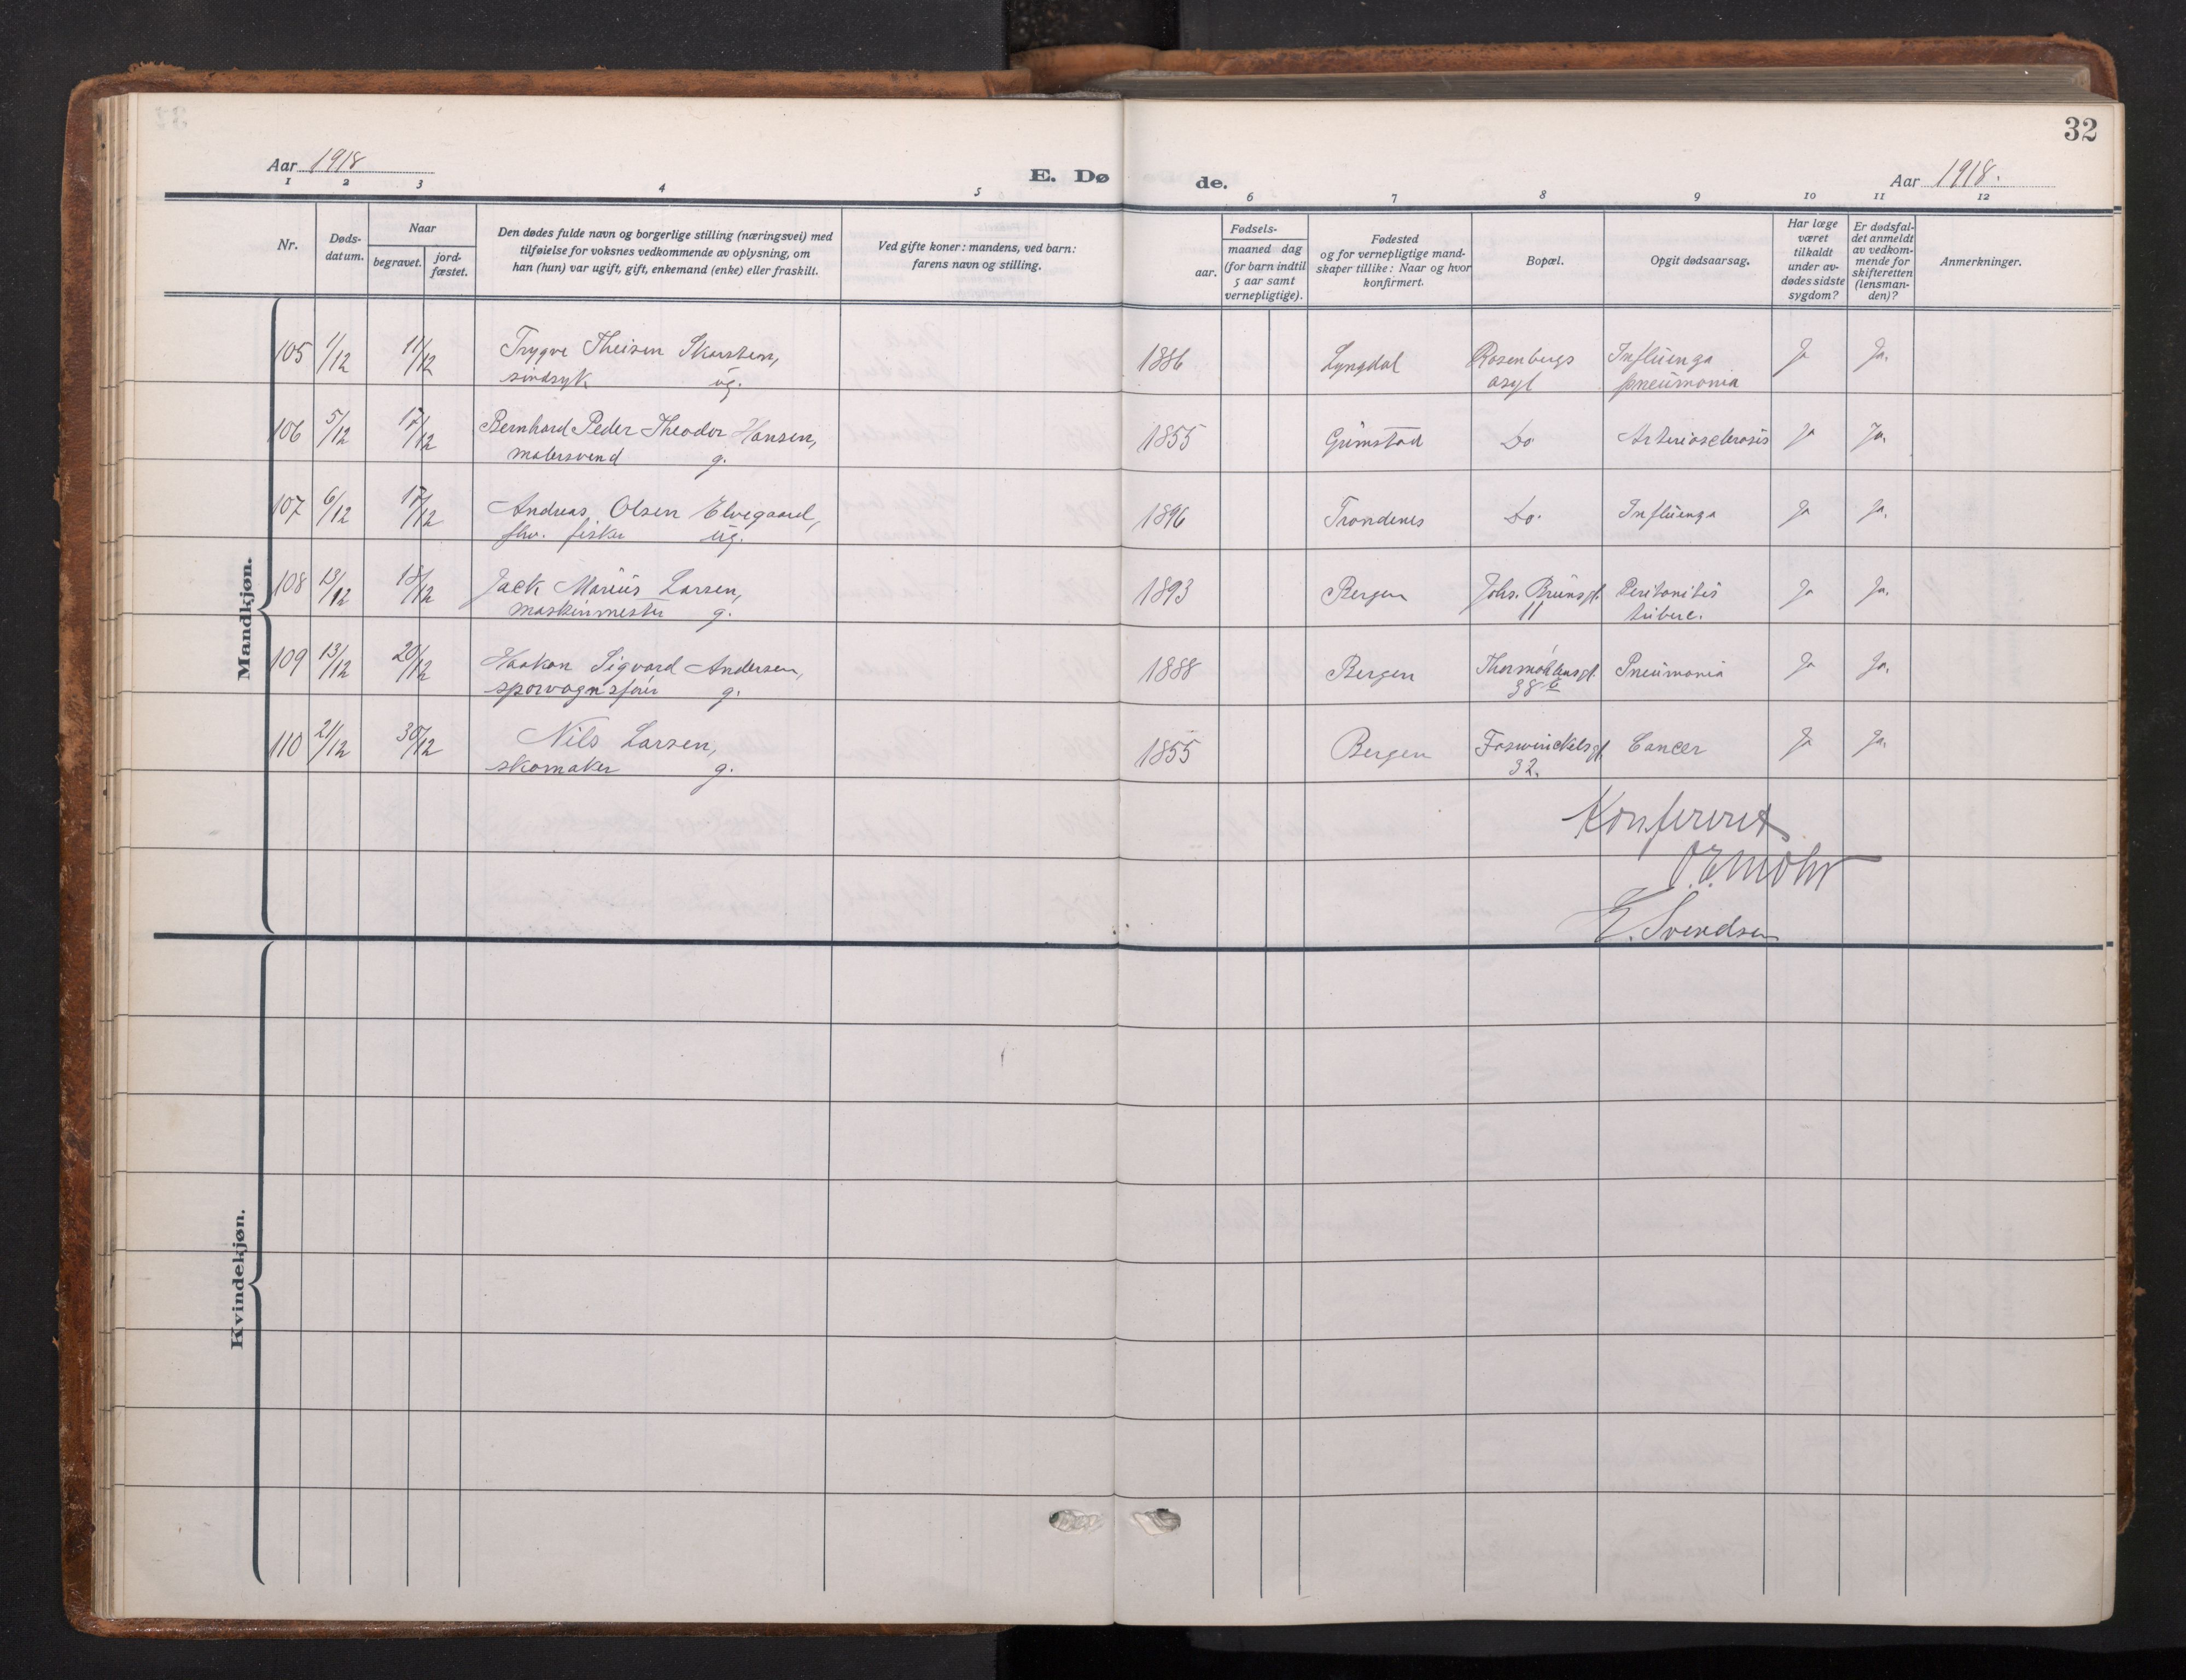 32
Aar 1918
E. Dø de.
Aar 1918.
1 2 3 4 5 6 7 8 9 10 11 12
Nr.
Døds-
datum.
Naar
begravet.
jord-
fæstet.
Den dødes fulde navn og borgerlige stilling (næringsvei) med
tilføielse for voksnes vedkommende av oplysning, om
han (hun) var ugift, gift, enkemand (enke) eller fraskilt.
Ved gifte koner: mandens, ved barn:
farens navn og stilling.
Fødsels-
aar.
maaned dag
(for barn indtil
5 aar samt
vernepligtige).
Fødested
og for vernepligtige mand-
skaper tillike: Naar og hvor
konfirmert.
Bopæl.
Opgit dødsaarsag.
Har læge
været
tilkaldt
under av-
dødes sidste
sygdom?
Er dødsfal-
det anmeldt
av vedkom-
mende for
skifteretten
(lensman-
den)?
Anmerkninger.
Mandkjøn.
105 1/12 11/12 Trygve Theisen Skarstein, 1886 Lyngdal Rosenbergs Influenza Ja Ja.
sindsyk ug. asyl pneumonia
106 5/12 17/12 Bernhard Peder Theodor Hansen, 1855 Grimstad Do Arteriosclerosis Ja Ja.
malersvend g.
107 6/12 17/12 Andreas Olsen Elvegaard, 1896 Trondenes Do. Influenza Ja Ja.
fhv. fisker ug.
108 13/12 18/12 Jack Marius Larsen, 1893 Bergen Johs. Brunsgt. Peritonitis Ja Ja.
maskinmester g. 11 tuberc.
109 13/12 20/12 Haakon Sigvard Andersen, 1888 Bergen Thormøhlensgt. Pneumonia Ja Ja.
sporvognsfører g. 38
110 21/12 30/12 Nils Larsen, 1855 Bergen Foswinckelsgt. Cancer Ja Ja.
skomaker g. 32.
Konfereret
Mohr
E. Svendsen
Kvindekjøn.